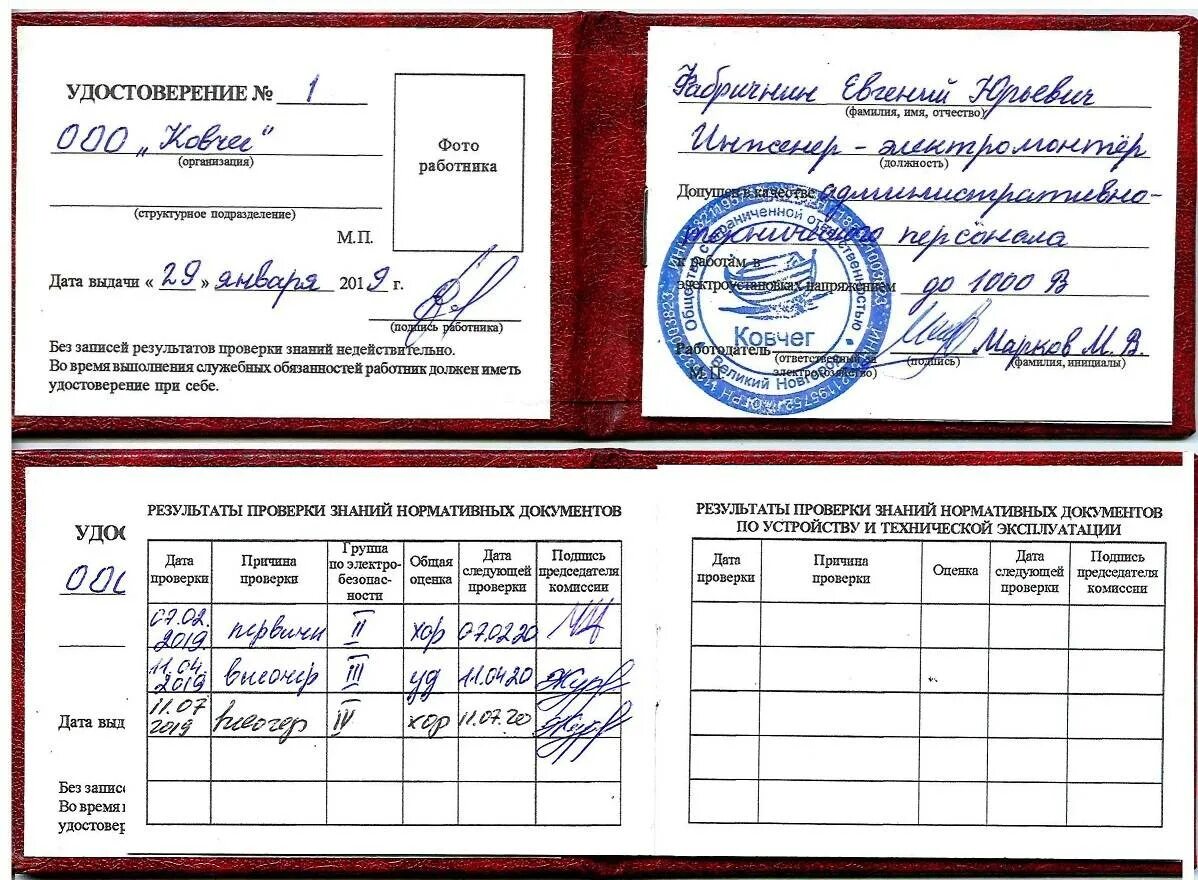 УДОСТОВЕРЕНИЕ № 1
ООО „Ковчег"
(организация)
(структурное подразделение)
Фото
работника
М.П.
Дата выдачи « 29 » января 2019 г.
(подпись работника)
Без записей результатов проверки знаний недействительно.
Во время выполнения служебных обязанностей работник должен иметь
удостоверение при себе.
Фабричнин Евгений Юрьевич
(фамилия, имя, отчество)
Инженер - электромонтёр
(должность)
Допущен в качестве административно-
технического персонала
к работам в
электроустановках напряжением до 1000 В
Работодатель Марков М. В.
(ответственный за (подпись) (фамилия, инициалы)
М.П. электрохозяйство)
Общество с ограниченной ответственностью
Ковчег
Великий Новгород
РЕЗУЛЬТАТЫ ПРОВЕРКИ ЗНАНИЙ НОРМАТИВНЫХ ДОКУМЕНТОВ
УДОС
ООО
Дата выд
Без записе
Во время
удостовер
Дата проверки Причина проверки Группа по электро-безопас-ности Общая оценка Дата следующей проверки Подпись председателя комиссии
07.02.2019 первичн II хор 07.02.20
11.04 2019 внеочер III уд 11.04.20
11.07 2019 внеочер IV хор 11.07.20
РЕЗУЛЬТАТЫ ПРОВЕРКИ ЗНАНИЙ НОРМАТИВНЫХ ДОКУМЕНТОВ
ПО УСТРОЙСТВУ И ТЕХНИЧЕСКОЙ ЭКСПЛУАТАЦИИ
Дата проверки Причина проверки Оценка Дата следующей проверки Подпись председателя комиссии